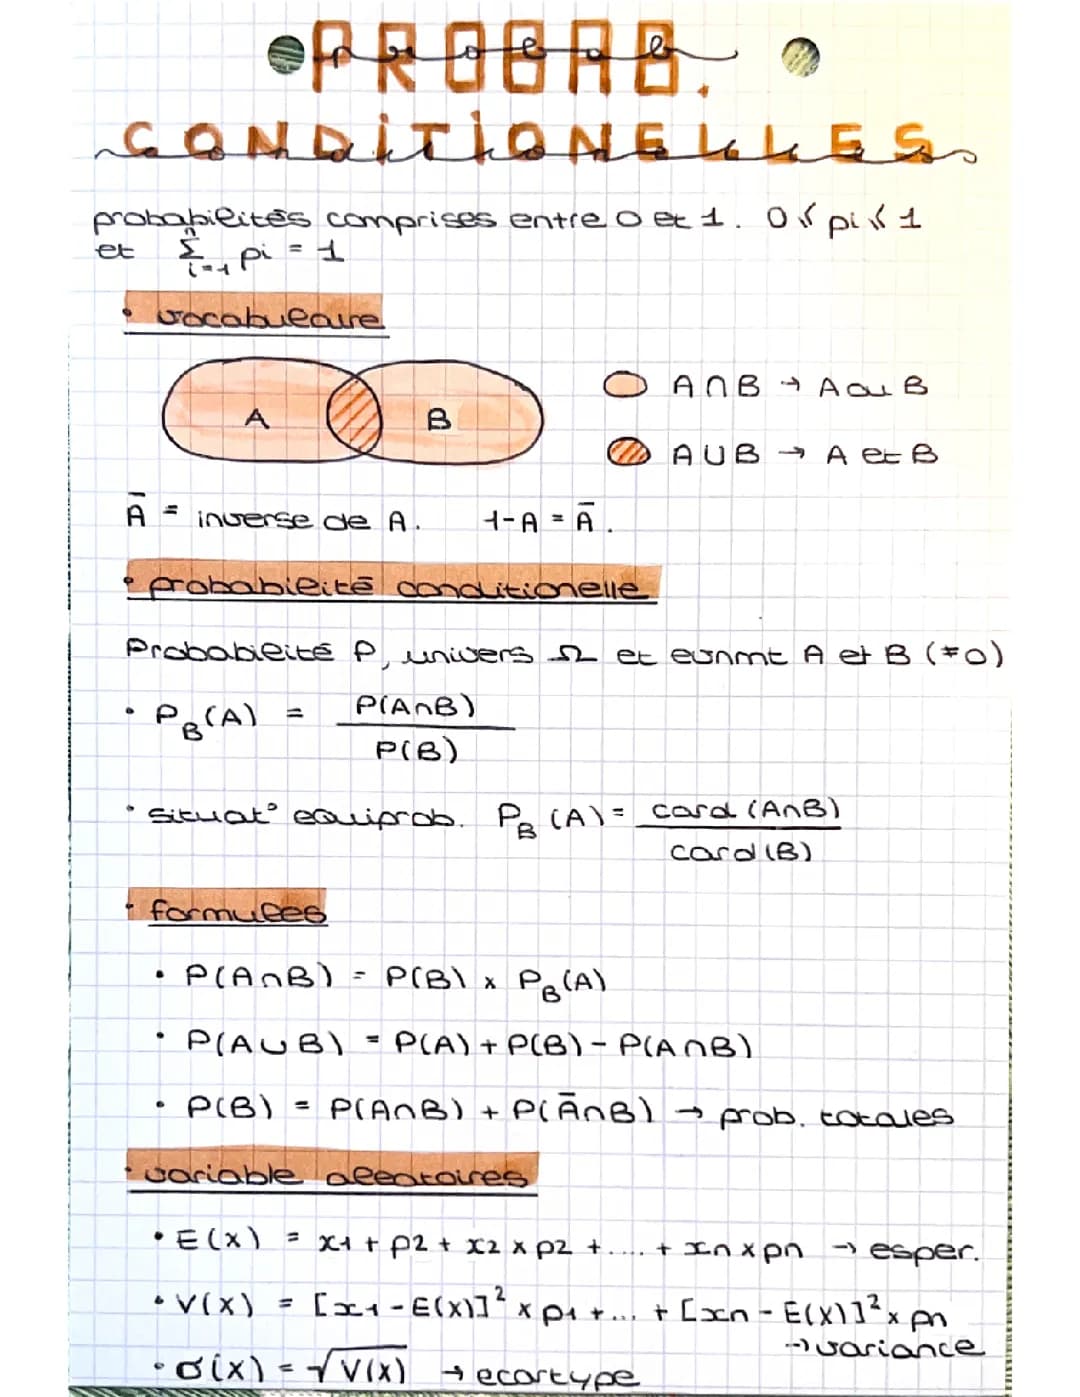 PROBAB.
CONDITIONELLES
probabilités comprises entre 0 et 1. 0 ≤ pi ≤ 1
et n∑i=1 pi = 1
• vocabulaire
A B
A∩B → A ou B
A∪B → A et B
Ā = inverse de A. 1-A = Ā.
• probabilité conditionelle
Probabilité P, univers Ω et evnmt A et B (≠0)
• P_B(A) = P(A∩B)
P(B)
• situat° equiprob. P_B(A) = card (A∩B)
card (B)
• formules
• P(A∩B) = P(B) x P_B(A)
• P(A∪B) = P(A) + P(B) - P(A∩B)
• P(B) = P(A∩B) + P(Ā∩B) → prob. totales
• variable aleatoires
• E(x) = x1 + p2 + x2 x p2 + .... + xn x pn → esper.
• V(x) = [x1 - E(x)]² x p1 + ... + [xn - E(x)]² x pn
→ variance
• σ(x) = √V(x) → ecartype